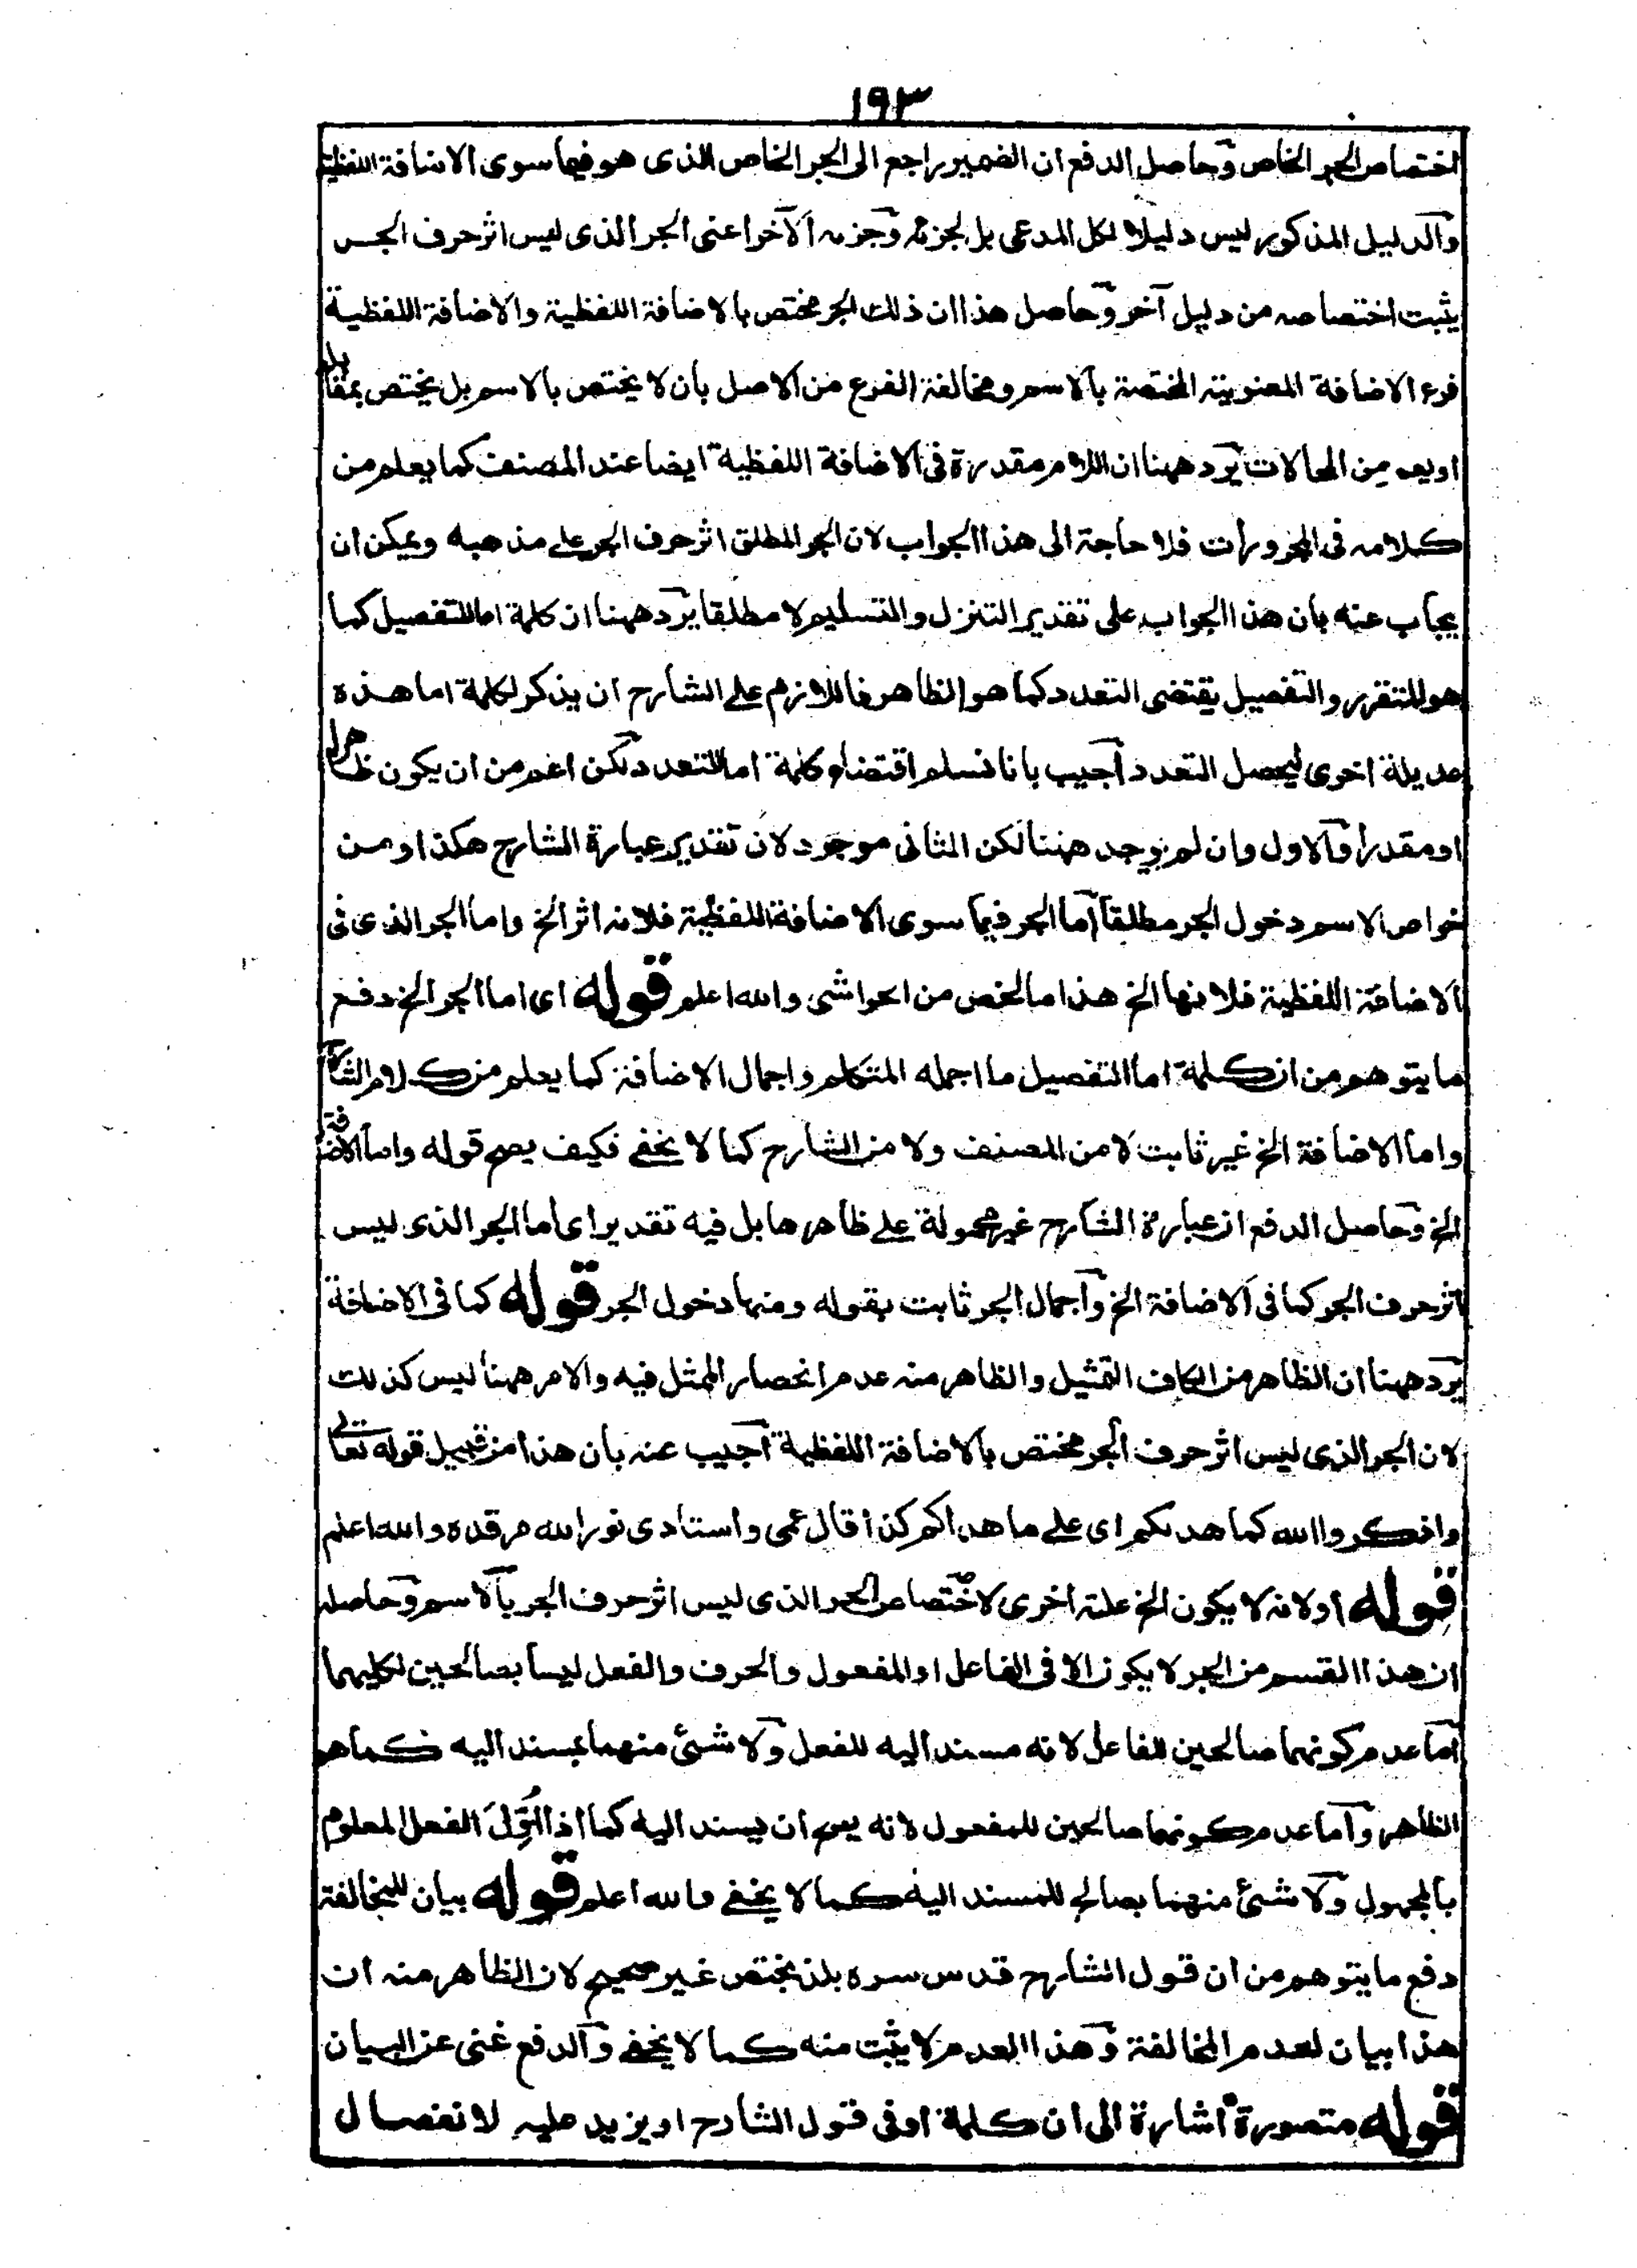 ١٩٣
اختصاص الجر الخاص وحاصل الدفع ان الضمير راجع الى الجر الخاص الذى هو فيما سوى الاضافة اللفظية
والدليل المذكور ليس دليلا لكل المدعى بل لجزئه وجزءه الآخر اعنى الجر الذى ليس اثر حرف الجر
يثبت اختصاصه من دليل آخر وحاصل هذا ان ذلك الجر مختص بالاضافة اللفظية والاضافة اللفظية
فرع الاضافة المعنوية المختصة بالاسم ومخالفة الفرع من الاصل بأن لا يختص بالاسم بل يختص بمقابله
او يعم من المحالات يرد ههنا ان اللام مقدرة فى الاضافة اللفظية ايضا عند المصنف كما يعلم من
كلامه فى المجرورات فلا حاجة الى هذا الجواب لان الجر المطلق اثر حرف الجر على مذهبه ويمكن ان
يجاب عنه بأن هذا الجواب على تقدير التنزل والتسليم لا مطلقا يرد ههنا ان كلمة اما للتفصيل كما
هو المتقرر والتفصيل يقتضى التعدد كما هو الظاهر فاللازم على الشارح ان يذكر لكلمة اما هذه
عديلة اخرى ليحصل التعدد اجيب بانا نسلم اقتضاء كلمة اما للتعدد لكن اعم من ان يكون ظاهرا
او مقدرا والاول وان لم يوجد ههنا لكن الثانى موجود لان تقدير عبارة الشارح هكذا ومن
خواص الاسم دخول الجر مطلقا اما الجر فيما سوى الاضافة اللفظية فلانه اثر الخ واما الجر الذى فى
الاضافة اللفظية فلانها الخ هذا مالخص من الحواشى والله اعلم قوله اى اما الجر الخ دفع
ما يتوهم من ان كلمة اما لتفصيل ما اجمله المتكلم واجمال الاضافة كما يعلم من كلام الشارح
واما الاضافة الخ غير ثابت لا من المصنف ولا من الشارح كما لا يخفى فكيف يصح قوله واما الاضافة
الخ وحاصل الدفع ان عبارة الشارح غير محمولة على ظاهرها بل فيه تقدير اى اما الجر الذى ليس
اثر حرف الجر كما فى الاضافة الخ واجمال الجر ثابت بقوله ومنها دخول الجر قوله كما فى الاضافة
يرد ههنا ان الظاهر من الكاف التمثيل والظاهر منه عدم انحصار الممثل فيه والامر ههنا ليس كذلك
لان الجر الذى ليس اثر حرف الجر مختص بالاضافة اللفظية اجيب عنه بأن هذا من قبيل قوله تعالى
واذكروا الله كما هدىكم اى على ما هداكم كذا قال عمى واستادى نور الله مرقده والله اعلم
قوله اولانه لا يكون الخ علة اخرى لاختصاص الجر الذى ليس اثر حرف الجر بالاسم وحاصله
ان هذا القسم من الجر لا يكون الا فى الفاعل او المفعول والحرف والفعل ليسا بصالحين لكليهما
اما عدم كونهما صالحين للفاعل لانه مسند اليه للفعل ولا شئ منهما بمسند اليه كما هو
الظاهر واما عدم كونهما صالحين للمفعول لانه يصح ان يسند اليه كما اذا اُوِّلَ الفعل المعلوم
بالمجهول ولا شئ منهما بصالح للمسند اليه كما لا يخفى والله اعلم قوله بيان للمخالفة
دفع ما يتوهم من ان قول الشارح قدس سره بان يختص غير صحيح لان الظاهر منه ان
هذا بيان لعدم المخالفة وهذا العدم لا يثبت منه كما لا يخفى والدفع غنى عن البيان
قوله متصورة اشارة الى ان كلمة او فى قول الشارح او يزيد عليه لانفصال